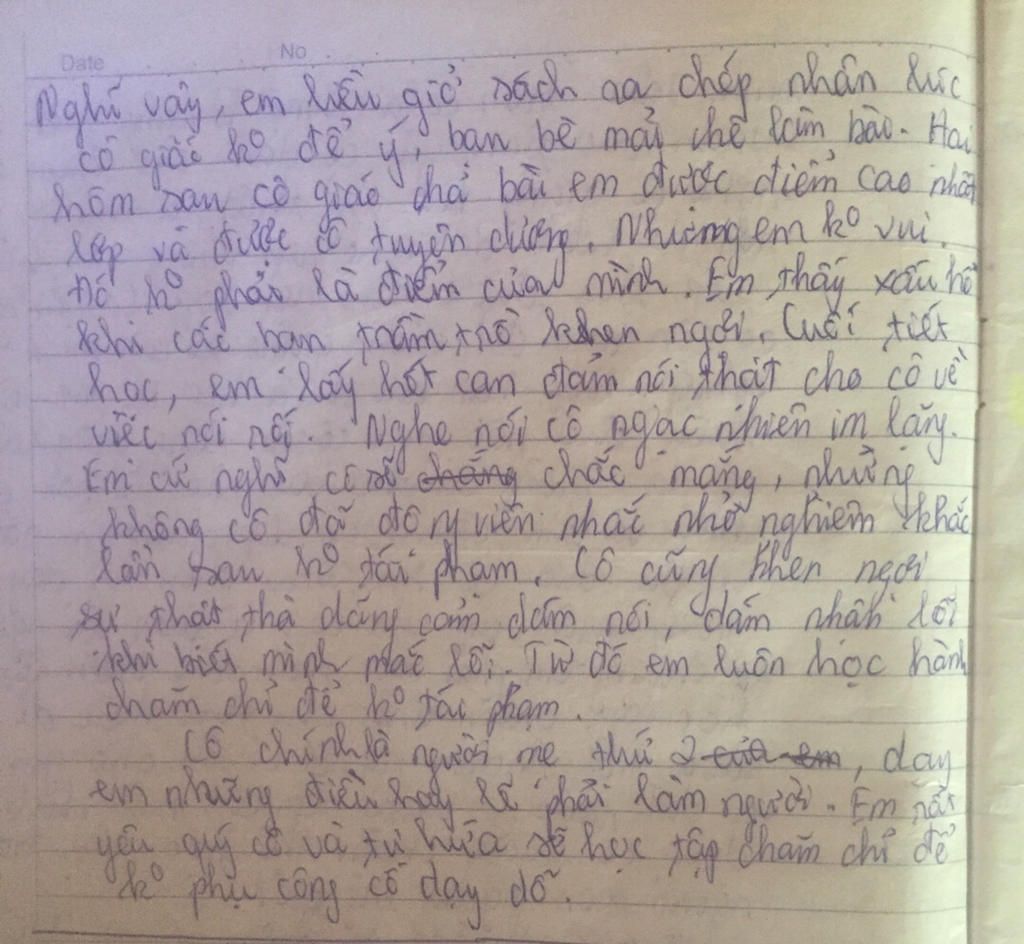 Date No
Nghĩ vậy, em liền giở sách ra chép nhân lúc
cô giáo ko để ý, bạn bè mải chê làm bào. Hai
hôm sau cô giáo chả bài em được điểm cao nhất
lớp và được cô tuyên dương. Nhưng em ko vui.
Đó ko phải là điểm của mình. Em thấy xấu hổ
khi các bạn trầm trồ khen ngợi. Cuối tiết
học, em lấy hết can đảm nói thật cho cô về
việc nói nối. Nghe nói cô ngạc nhiên im lặng.
Em cứ nghĩ cô sẽ chắng chắc mắng, nhưng
không cô đã động viên nhắc nhở nghiêm khắc
lần sau ko tái phạm. Cô cũng khen ngợi
sự thật thà dũng cảm dám nói, dám nhận lỗi
khi biết mình mắc lỗi. Từ đó em luôn học hành
chăm chỉ để ko tái phạm.
Cô chính là người mẹ thứ 2 của em, dạy
em những điều hay lẽ phải làm người. Em rất
yêu quý cô và tự hứa sẽ học tập chăm chỉ để
ko phụ công cô dạy dỗ.